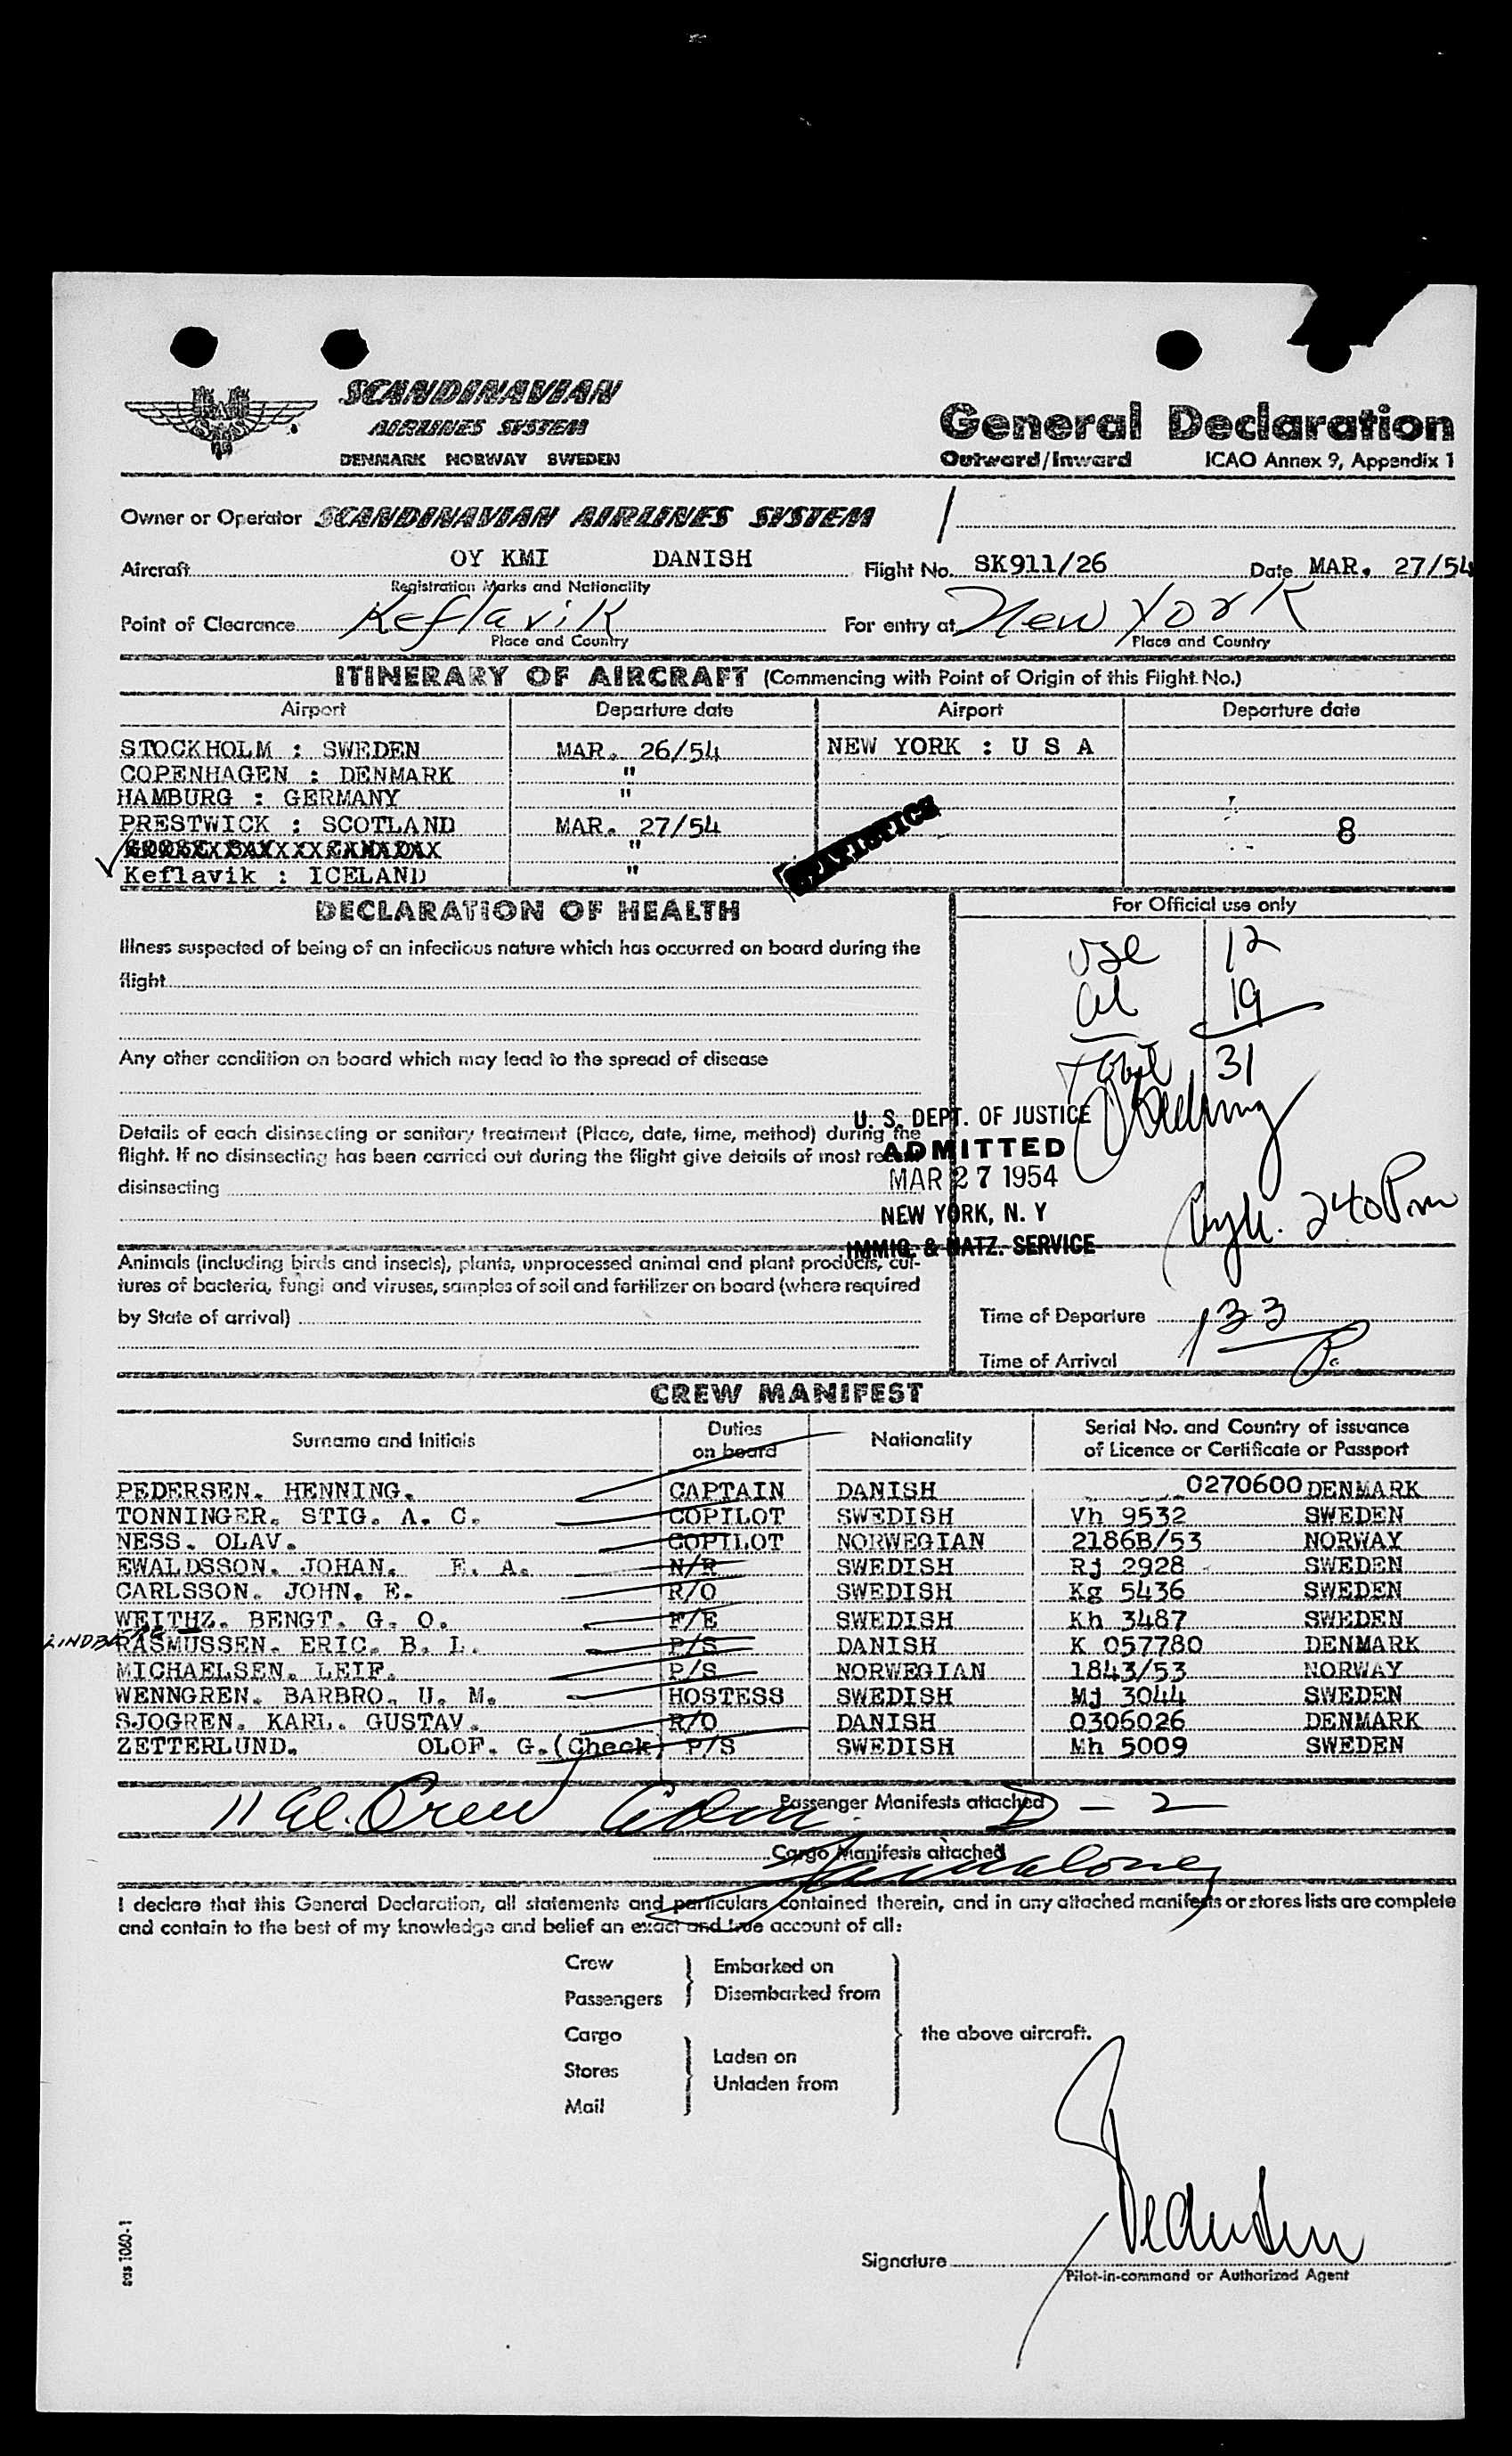 SCANDINAVIAN
AIRLINES SYSTEM
DENMARK NORWAY SWEDEN
General Declaration
Outward/Inward ICAO Annex 9, Appendix 1
Owner or Operator SCANDINAVIAN AIRLINES SYSTEM
Aircraft OY KMI DANISH Flight No. SK911/26 Date MAR. 27/54
Registration Marks and Nationality
Point of Clearance Keflavik For entry at New York
Place and Country Place and Country
ITINERARY OF AIRCRAFT (Commencing with Point of Origin of this Flight No.)
Airport Departure date Airport Departure date
STOCKHOLM : SWEDEN MAR. 26/54 NEW YORK : U S A
COPENHAGEN : DENMARK "
HAMBURG : GERMANY "
PRESTWICK : SCOTLAND MAR. 27/54 8
"
Keflavik : ICELAND "
STATISTICS
DECLARATION OF HEALTH
For Official use only
Illness suspected of being of an infectious nature which has occurred on board during the
flight
12
19
Total 31
Any other condition on board which may lead to the spread of disease
Details of each disinsecting or sanitary treatment (Place, date, time, method) during the
flight. If no disinsecting has been carried out during the flight give details of most recent
disinsecting
U. S. DEPT. OF JUSTICE
ADMITTED
MAR 27 1954
NEW YORK, N. Y
IMMIG. & NATZ. SERVICE
240 Pm
Animals (including birds and insects), plants, unprocessed animal and plant products, cul-
tures of bacteria, fungi and viruses, samples of soil and fertilizer on board (where required
by State of arrival)
Time of Departure
133 P.
Time of Arrival
CREW MANIFEST
Surname and Initials Duties on board Nationality Serial No. and Country of issuance of Licence or Certificate or Passport
PEDERSEN. HENNING. CAPTAIN DANISH 0270600 DENMARK
TONNINGER. STIG. A. C. COPILOT SWEDISH Vh 9532 SWEDEN
NESS. OLAV. COPILOT NORWEGIAN 2186B/53 NORWAY
EWALDSSON. JOHAN. E. A. N/R SWEDISH Rj 2928 SWEDEN
CARLSSON. JOHN. E. R/O SWEDISH Kg 5436 SWEDEN
WEITHZ. BENGT. G. O. F/E SWEDISH Kh 3487 SWEDEN
LINDBERG RASMUSSEN. ERIC. B. L. P/S DANISH K 057780 DENMARK
MICHAELSEN. LEIF. P/S NORWEGIAN 1843/53 NORWAY
WENNGREN. BARBRO. U. M. HOSTESS SWEDISH Mj 3044 SWEDEN
SJOGREN. KARL. GUSTAV. R/O DANISH 0306026 DENMARK
ZETTERLUND. OLOF. G. (Check) P/S SWEDISH Mh 5009 SWEDEN
11 al. Crew Adm. Passenger Manifests attached D - 2
Cargo Manifests attached
I declare that this General Declaration, all statements and particulars contained therein, and in any attached manifests or stores lists are complete
and contain to the best of my knowledge and belief an exact and true account of all:
Crew Embarked on
Passengers Disembarked from
Cargo the above aircraft.
Stores Laden on
Unladen from
Mail
Signature Pedersen
Pilot-in-command or Authorized Agent
sas 1060-1